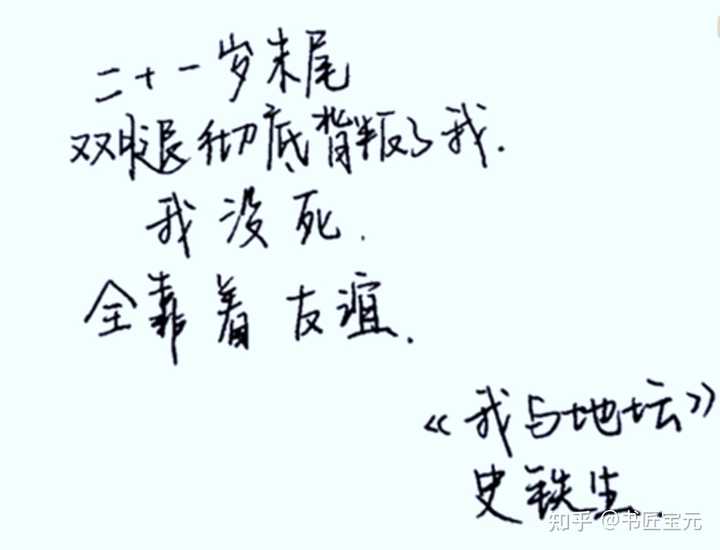 二十一岁末尾
双腿彻底背叛了我.
我没死.
全靠着友谊.
《我与地坛》
史铁生.
知乎 @书匠宝元